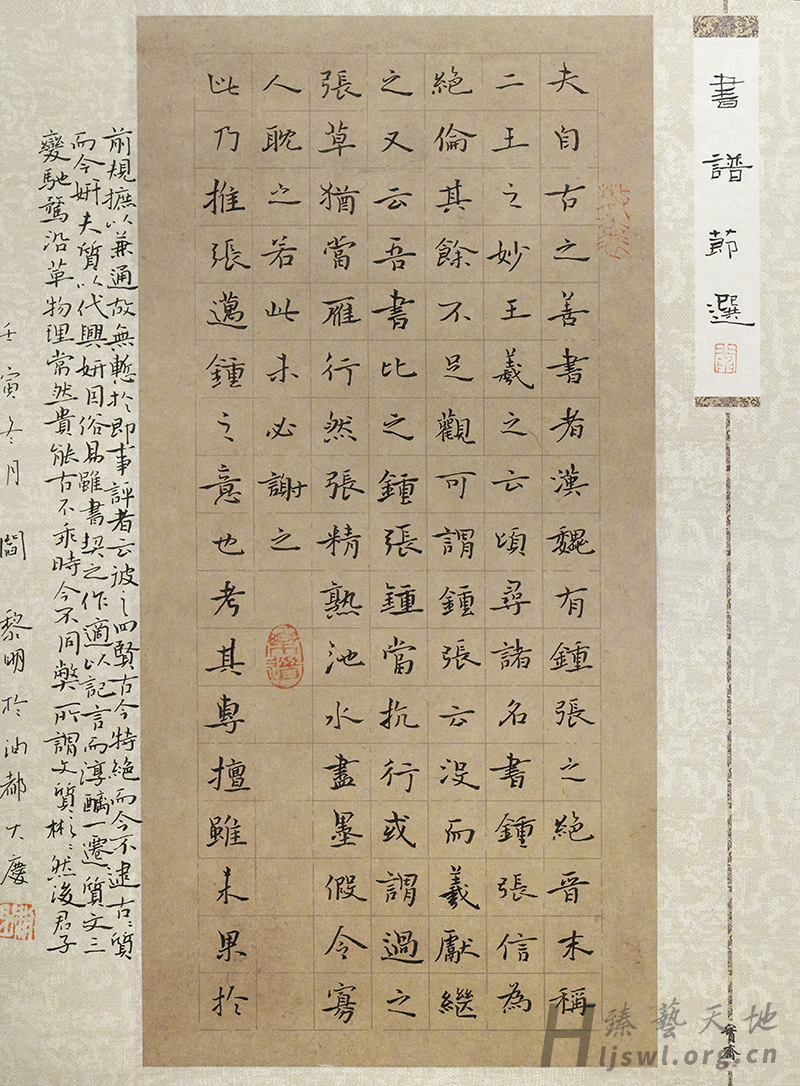 書譜節選
夫自古之善書者漢魏有鍾張之絕晉末稱
二王之妙王羲之云頃尋諸名書鍾張信為
絕倫其餘不足觀可謂鍾張云沒而羲獻繼
之又云吾書比之鍾張鍾當抗行或謂過之
張草猶當雁行然張精熟池水盡墨假令寡
人耽之若此未必謝之
此乃推張邁鍾之意也考其專擅雖未果於
前規摭以兼通故無慙於即事評者云彼之四賢古今特絕而今不逮古〻質
而今妍夫質以代興妍因俗易雖書契之作適以記言而淳醨一遷質文三
變馳騖沿革物理常然貴能古不乖時今不同弊所謂文質彬〻然後君子
壬寅冬月 閻黎明於油都大慶
臻艺天地
Hljswl.org.cn